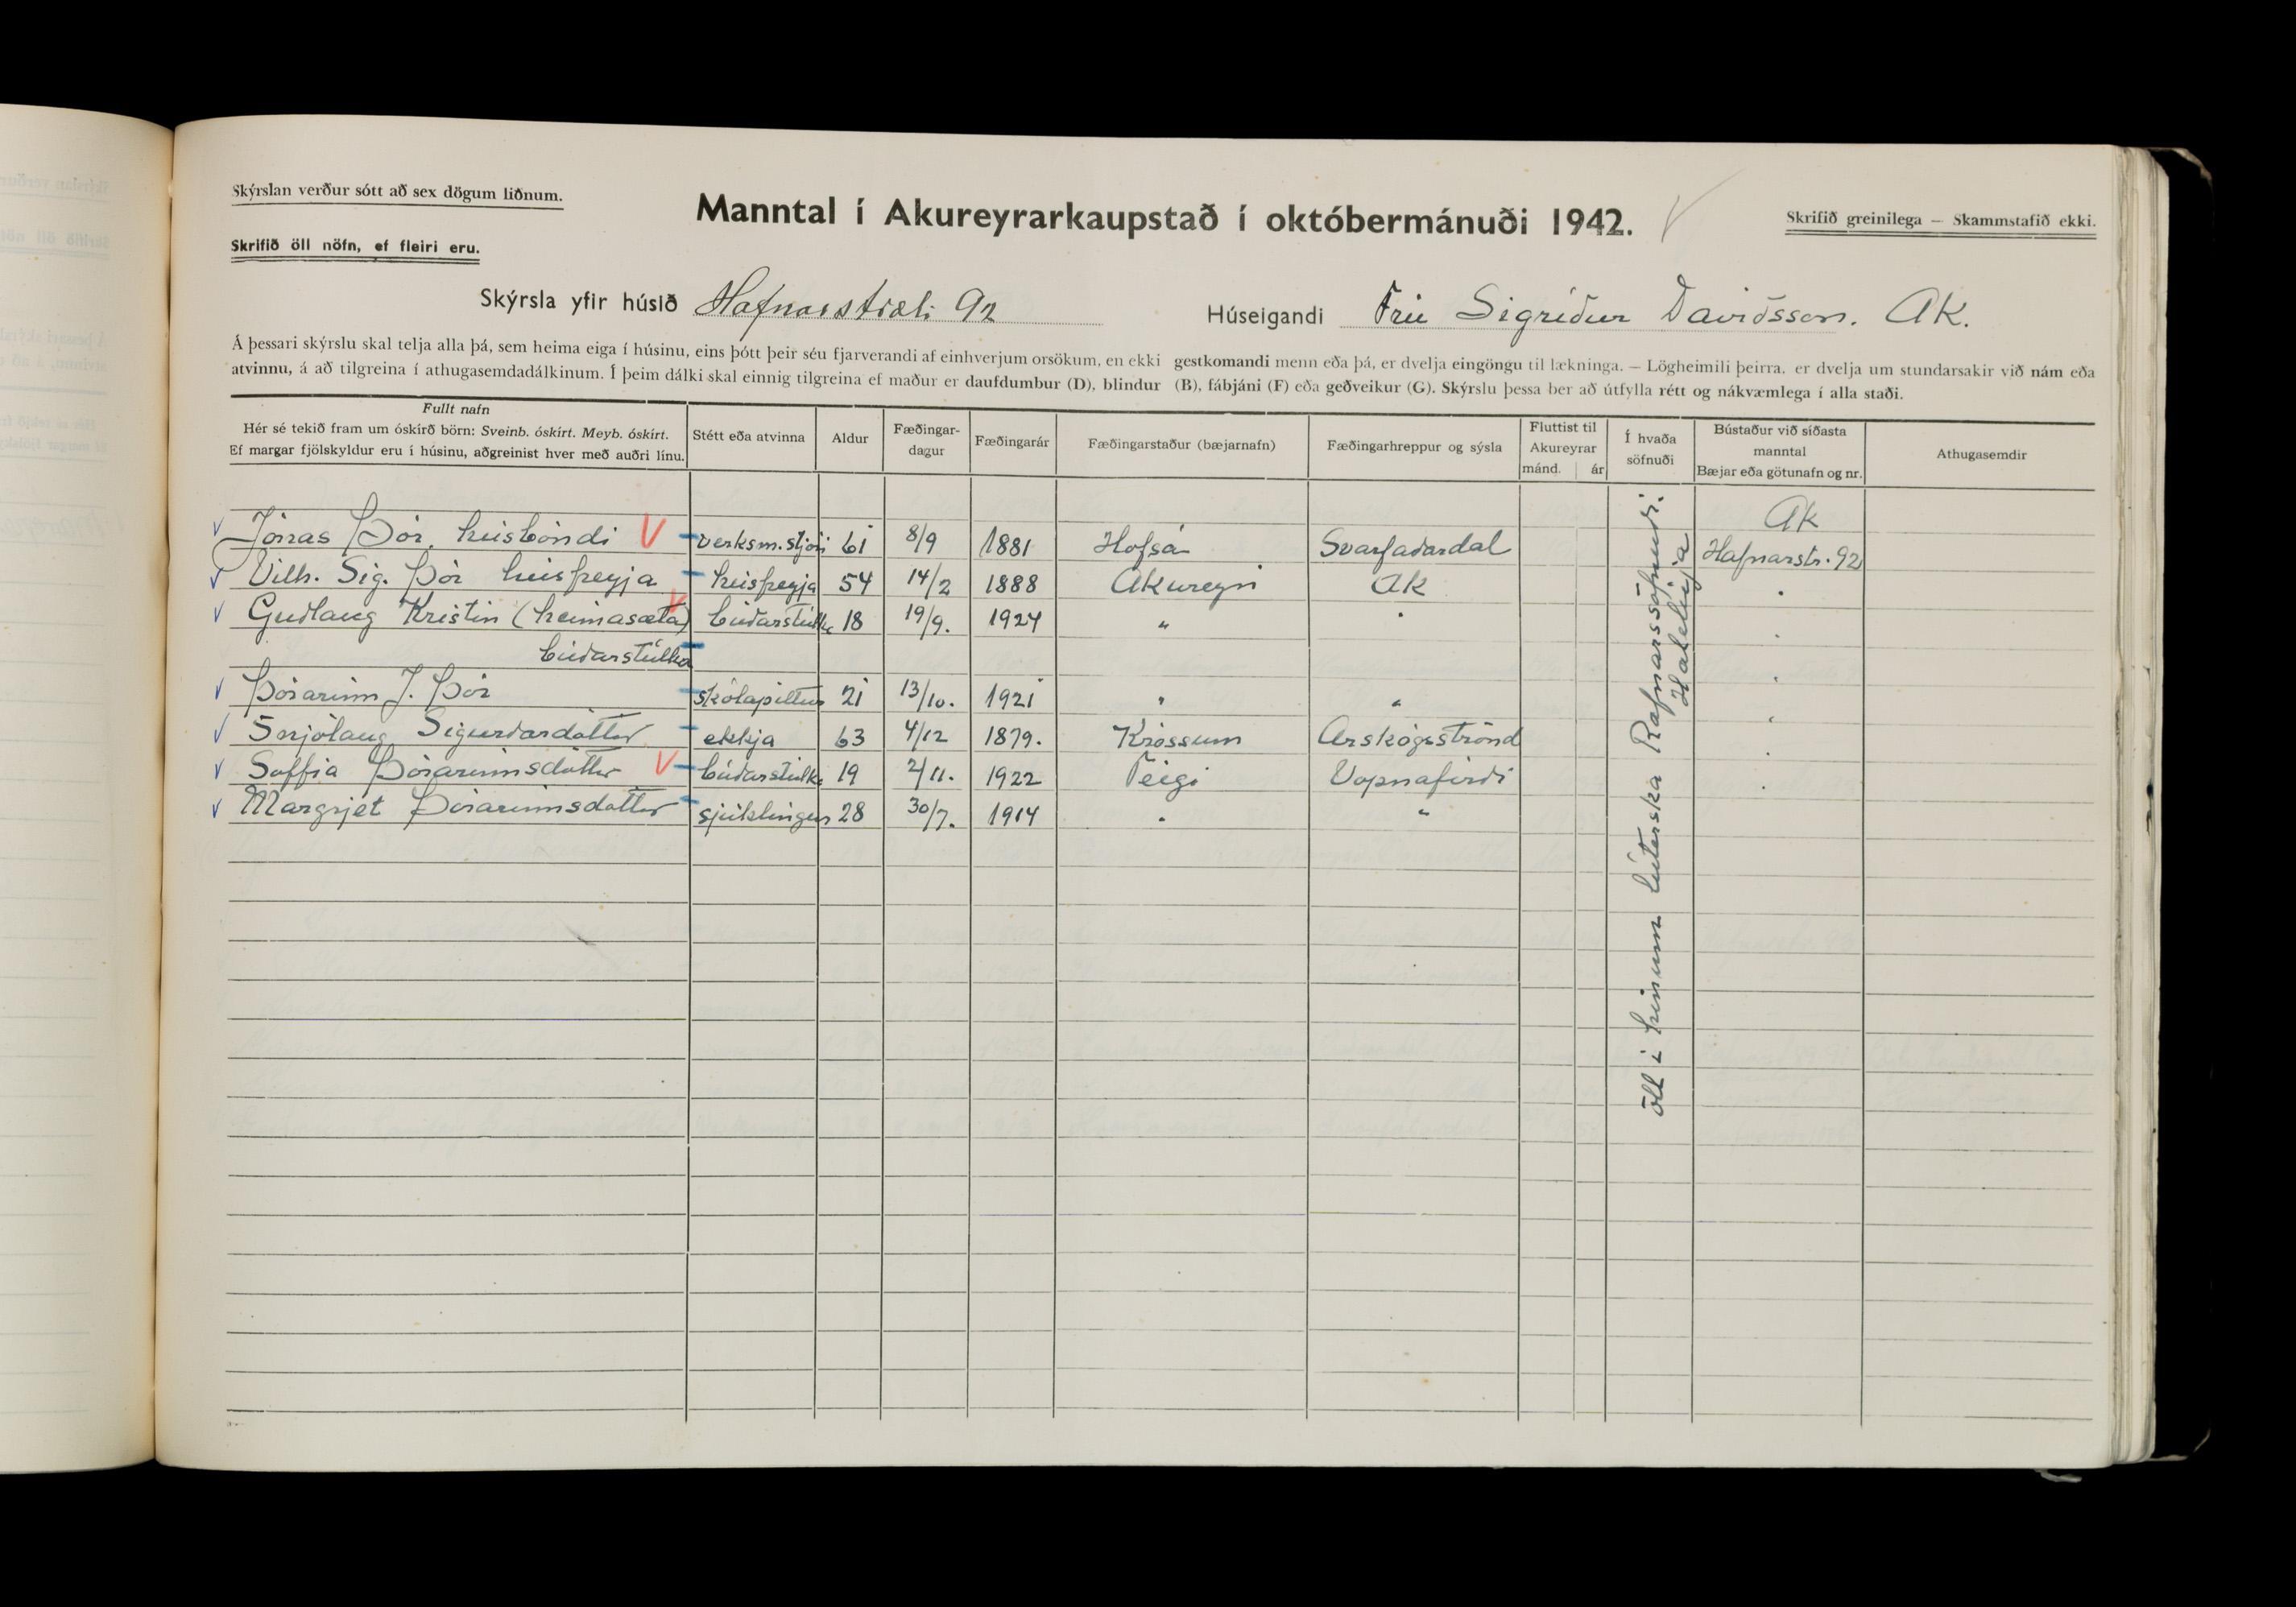 Skýrslan verður sótt að sex dögum liðnum.
Skrifið öll nöfn, ef fleiri eru.
Manntal í Akureyrarkaupstað í októbermánuði 1942.
Skrifið greinilega — Skammstafið ekki.
Skýrsla yfir húsið Hafnarstræti 92
Húseigandi Frú Sigríður Davíðsson. AK.
Á þessari skýrslu skal telja alla þá, sem heima eiga í húsinu, eins þótt þeir séu fjarverandi af einhverjum orsökum, en ekki gestkomandi menn eða þá, er dvelja eingöngu til lækninga. — Lögheimili þeirra, er dvelja um stundarsakir við nám eða
atvinnu, á að tilgreina í athugasemdadálkinum. Í þeim dálki skal einnig tilgreina ef maður er daufdumbur (D), blindur (B), fábjáni (F) eða geðveikur (G). Skýrslu þessa ber að útfylla rétt og nákvæmlega í alla staði.
Fullt nafn
Hér sé tekið fram um óskírð börn: Sveinb. óskírt. Meyb. óskírt.
Ef margar fjölskyldur eru í húsinu, aðgreinist hver með auðri línu.
Stétt eða atvinna
Aldur
Fæðingar-
dagur
Fæðingarár
Fæðingarstaður (bæjarnafn)
Fæðingarhreppur og sýsla
Fluttist til
Akureyrar
mánd. ár
Í hvaða
söfnuði
Bústaður við síðasta
manntal
Bæjar eða götunafn og nr.
Athugasemdir
Ak
Jónas Þór, húsbóndi verksm.stjóri 61 8/9 1881 Hofsá Svarfaðardal Hafnarstr. 92
Vilh. Sig. Þór húsfreyja húsfreyja 54 14/2 1888 Akureyri AK "
Guðlaug Kristín (heimasæta) búðarstúlka 18 19/9. 1924 " " "
búðarstúlka "
Þórarinn J. Þór skólapiltur 21 13/10. 1921 " " "
Snjólaug Sigurðardóttir ekkja 63 4/12 1879. Krossum Árskógsströnd "
Soffía Þórarinsdóttir búðarstúlka 19 2/11. 1922 Teigi Vopnafirði "
Margrjet Þórarinsdóttir sjúklingur 28 30/7. 1914 " "
öll í hinum lúterska Rafnarssöfnuði.
Halelúja